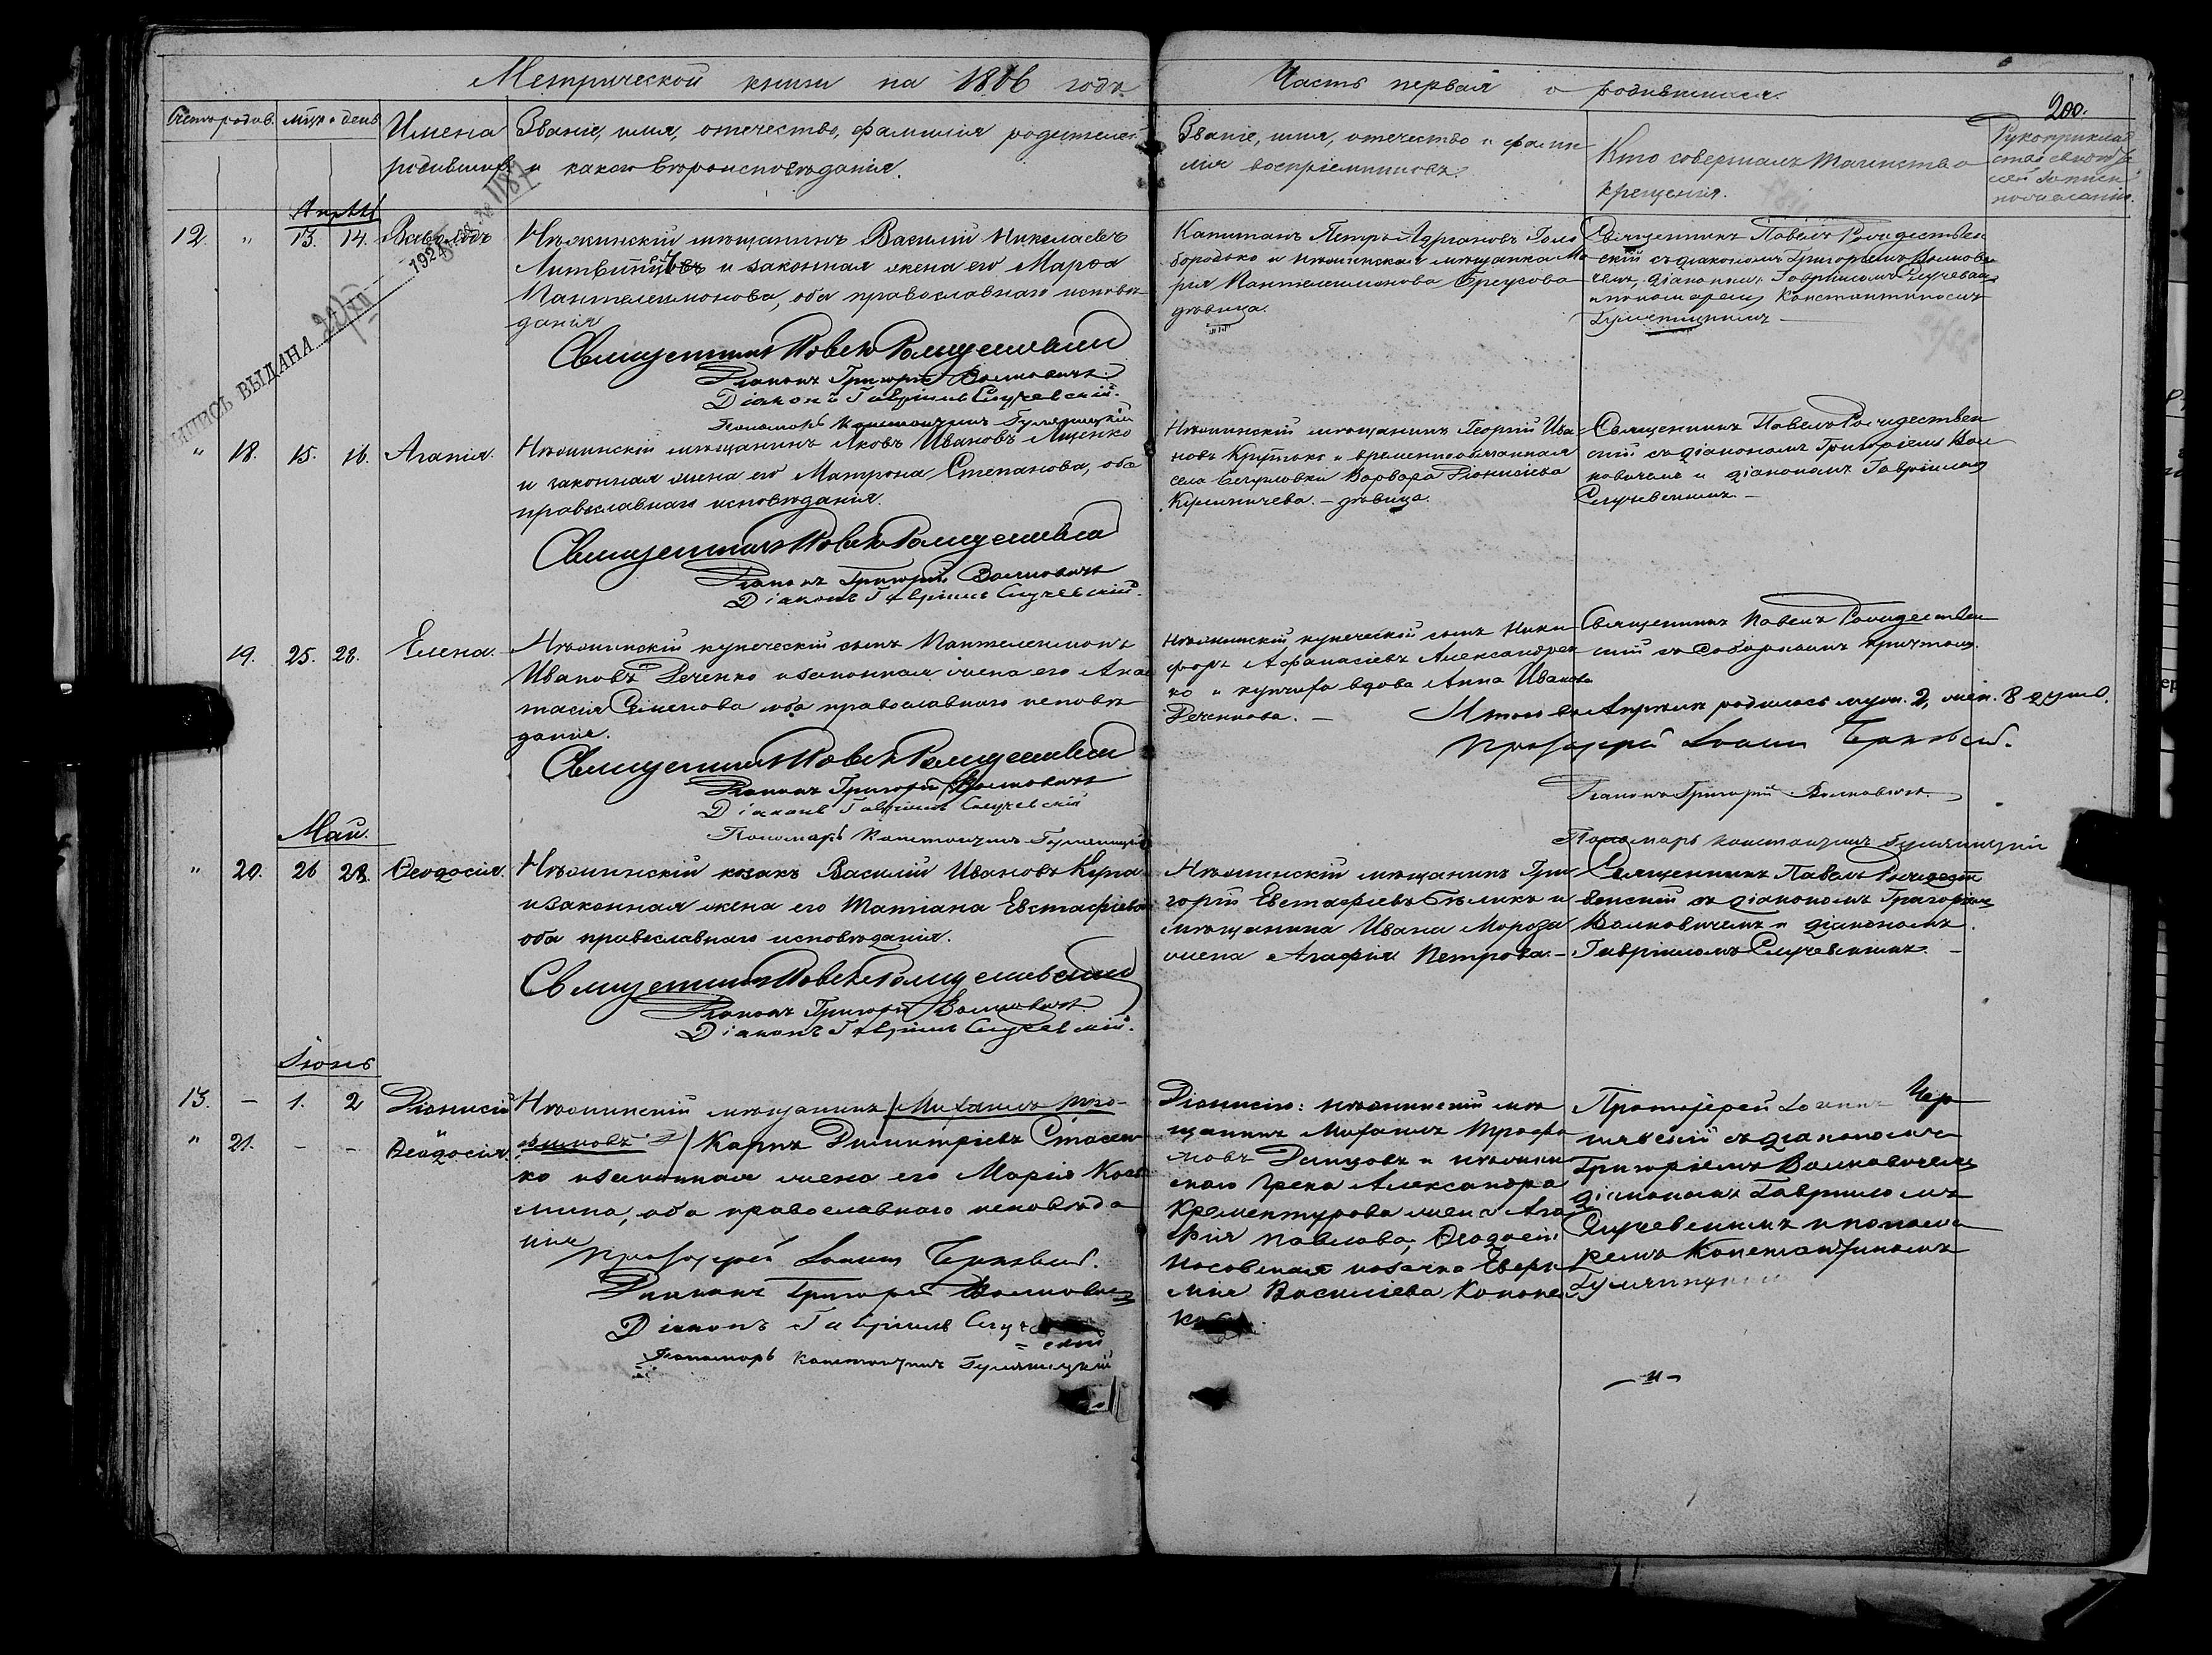 Метрической книги на 1866 годъ.
Часть первая о родившихся.
200.
Счетъ родив. мцъ и день
Имена родившихся
Званіе, имя, отечество, фамилія родителей
и какого вѣроисповѣданія.
Званіе, имя, отечество и фами
лія воспріемниковъ.
Кто совершалъ таинство
крещенія.
Рукоприклад
ство свидѣт
лей записи
по желанію.
ВЫДАНА 1924
Апрѣль
12. " 13. 14. Всеволодъ
Нѣжинскій мѣщанинъ Василій Николаевъ
и законная жена его Марѳа
Пантелеимонова, оба православнаго исповѣ-
данія
Священникъ Павелъ Рождественскій
Діаконъ Григорій Волковичъ.
Діаконъ Гавріилъ Случевскій.
Пономарь Константинъ
Капитанъ Петръ Адріановъ Голо
бородько и нѣжинская мѣщанка Ма
рія Пантелеимонова
дѣвица.
Священникъ Павелъ Рождествен
скій съ діакономъ Григоріемъ Волкови
чемъ, діакономъ Гавріиломъ Случевским
и пономаремъ Константиномъ
" 18. 15. 16. Агапія.
Нѣжинскій мѣщанинъ Яковъ Ивановъ Ященко
и законная жена его Матрона Степанова, оба
православнаго исповѣданія.
Священникъ Павелъ Рождественскій
Діаконъ Григорій Волковичъ
Діаконъ Гавріилъ Случевскій.
Нѣжинскій мѣщанинъ Георгій Ива
новъ и временнообязанная
села Варвара Діонисіева
дѣвица.
Священникъ Павелъ Рождествен
скій съ діакономъ Григоріемъ Вол
ковичемъ и діакономъ Гавріиломъ
Случевскимъ. —
19. 25. 28. Елена.
Нѣжинскій купеческій сынъ Пантелеимонъ
Ивановъ Реченко и законная жена его Анас
тасія Семенова оба православнаго исповѣ
данія.
Священникъ Павелъ Рождественскій
Діаконъ Григорій Волковичъ
Діаконъ Гавріилъ Случевскій
Пономарь Константинъ
Нѣжинскій купеческій сынъ Ники
форъ Аѳанасіевъ Александрен
ко и купчиха вдова Анна Иванова
Реченкова. —
Священникъ Павелъ Рождествен
скій съ соборнымъ причтомъ.
Итого въ Апрѣлѣ родилось муж. 2, жен. 8 душъ.
Протоіерей Іоаннъ
Діаконъ Григорій Волковичъ
Пономарь Константинъ
Май.
" 20. 26 28. Ѳеодосія.
Нѣжинскій козакъ Василій Ивановъ Купа
и законная жена его Татіана Евстафіева
оба православнаго исповѣданія.
Священникъ Павелъ Рождественскій
Діаконъ Григорій Волковичъ
Діаконъ Гавріилъ Случевскій.
Нѣжинскій мѣщанинъ Гри
горій Евстафіевъ Бѣликъ и
мѣщанина Ивана Мороза
жена Агафія Петрова. —
Священникъ Павелъ Рождест
венскій съ діакономъ Григоріемъ
Волковичемъ и діакономъ
Гавріиломъ Случевскимъ. —
Іюнь
13. — 1. 2 Діонисій
" 21. — — Ѳеодосія.
Нѣжинскій мѣщанинъ / Михаилъ Тро-
/ Карпъ Димитріевъ Стасен
ко и законная жена его Марія Кось
мина, оба православнаго исповѣда
нія
Протоіерей Іоаннъ
Діаконъ Григорій Волковичъ
Діаконъ Гавріилъ Случевскій
Пономарь Константинъ
Діонисію: нѣжинскій мѣ
щанинъ Михаилъ Трофи
мовъ и нѣжин
скаго грека Александра
жена Ага
фія Павлова; Ѳеодосіи
козачка
Василіева Конона
Протоіерей Іоаннъ Чер
нявскій съ діакономъ
Григоріемъ Волковичемъ
діакономъ Гавріиломъ
Случевскимъ и понома
ремъ Константиномъ
—"—